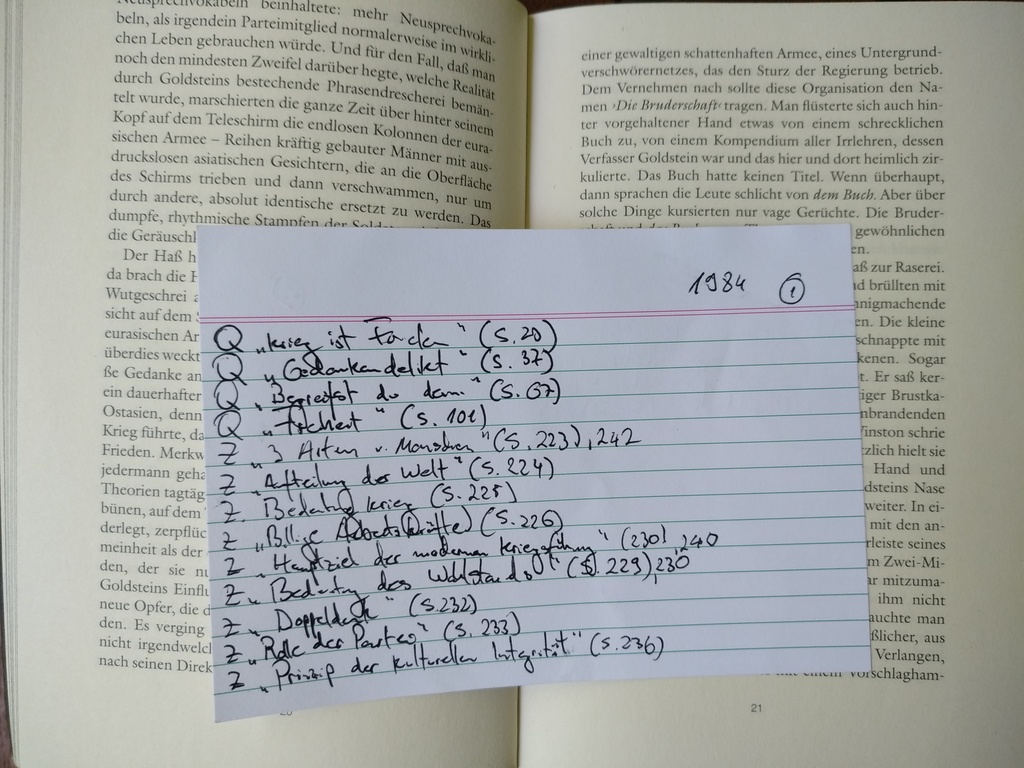 Neusprechvokabeln beinhaltete: mehr Neusprechvoka-
beln, als irgendein Parteimitglied normalerweise im wirkli-
chen Leben gebrauchen würde. Und für den Fall, daß man
noch den mindesten Zweifel darüber hegte, welche Realität
durch Goldsteins bestechende Phrasendrescherei bemän-
telt wurde, marschierten die ganze Zeit über hinter seinem
Kopf auf dem Teleschirm die endlosen Kolonnen der eura-
sischen Armee – Reihen kräftig gebauter Männer mit aus-
druckslosen asiatischen Gesichtern, die an die Oberfläche
des Schirms trieben und dann verschwammen, nur um
durch andere, absolut identische ersetzt zu werden. Das
dumpfe, rhythmische Stampfen der
die
Der Haß
da brach die
Wutgeschrei
sicht auf dem
eurasischen
überdies
ße Gedanke
ein dauerhafter
Ostasien,
Krieg führte,
Frieden.
jedermann
Theorien
bünen, auf dem
derlegt,
meinheit als der
den, der sie
Goldsteins
neue Opfer, die
den. Es verging
nicht
nach seinen
einer gewaltigen schattenhaften Armee, eines Untergrund-
verschwörernetzes, das den Sturz der Regierung betrieb.
Dem Vernehmen nach sollte diese Organisation den Na-
men ›Die Bruderschaft‹ tragen. Man flüsterte sich auch hin-
ter vorgehaltener Hand etwas von einem schrecklichen
Buch zu, von einem Kompendium aller Irrlehren, dessen
Verfasser Goldstein war und das hier und dort heimlich zir-
kulierte. Das Buch hatte keinen Titel. Wenn überhaupt,
dann sprachen die Leute schlicht von dem Buch. Aber über
solche Dinge kursierten nur vage Gerüchte. Die Bruder-
gewöhnlichen
en.
aß zur Raserei.
brüllten mit
nigmachende
en. Die kleine
schnappte mit
kenen. Sogar
t. Er saß ker-
iger Brustka-
nbrandenden
Winston schrie
zlich hielt sie
Hand und
dsteins Nase
weiter. In ei-
mit den an-
rleiste seines
m Zwei-Mi-
ar mitzuma-
ihm nicht
auchte man
ßlicher, aus
Verlangen,
vorschlagham-
21
1984 1
Q „Krieg ist Frieden" (S. 20)
Q „Gedankendelikt" (S. 37)
Q „Begreifst du denn" (S. 67)
Q „Freiheit" (S. 101)
Z „3 Arten v. Menschen" (S. 223), 242
Z „Aufteilung der Welt" (S. 224)
Z. Bedeutung Krieg (S. 225)
Z „Billige Arbeits(kräfte) (S. 226)
Z „Hauptziel der modernen Kriegsführung" (230), 240
Z „Bedeutung des Wohlstands" (S. 229), 230
Z „Doppeldenk" (S. 232)
Z „Rolle der Partei" (S. 233)
Z „Prinzip der kulturellen Integrität" (S. 236)